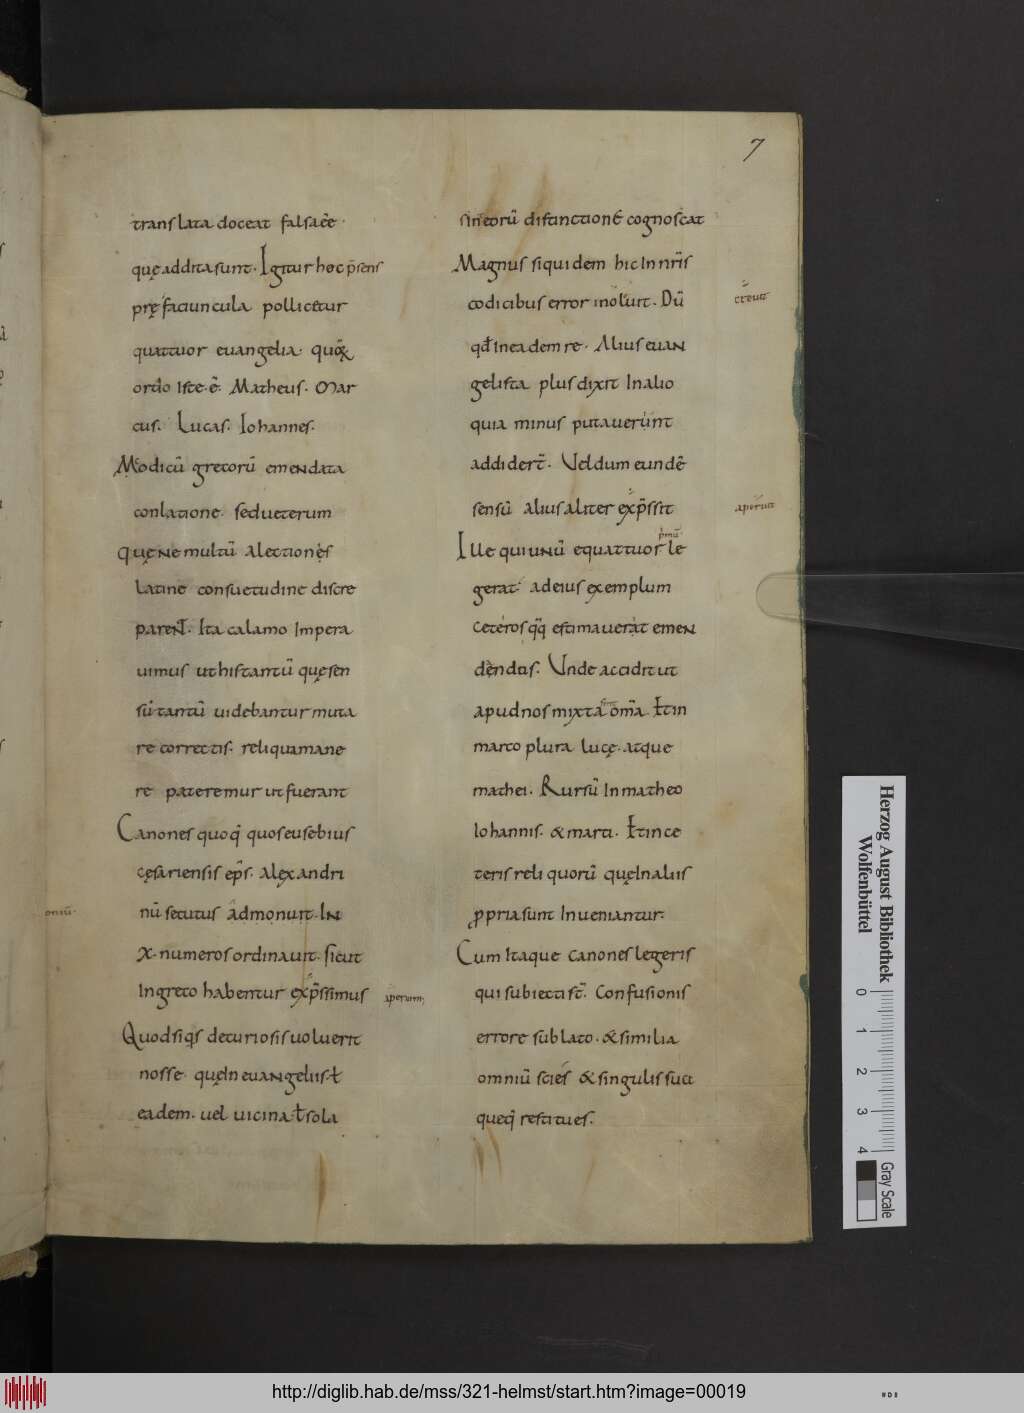 7
translata doceat falsaēē·
quę addita sunt· Igitur hoc p̄sens
pręfaciuncula pollicetur
quattuor euangelia· quoꝝ
ordo iste·ē· Matheus· Mar
cus· Lucas· Iohannes·
Modicū grecorū emendata
conlatione· sed ueterum
quę ne multū a lectionęs
latine consuetudine discre
parent· Ita calamo impera
uimus ut his tantū quę sen
sū tantū uidebantur muta
re correctis· reliqua mane
re pateremur ut fuerant
Canones quoq; quos eusebius
cęsariensis ep̄s· alexandri
nū secutus admonuit· In
onıū·
x· numeros ordinauit· sicut
in greco habentur exp̄ssimus
Quod siq̄s de curiosis uoluerit
nosse· quę in euangeliis· ł
eadem· uel uicina· ł sola
sinctorū distinctionē cognoscat
Magnus siquidem hic in nr̄is
codicibus error inoluit· Dū
creuit
qđ in eadem re· Alius euan
gelista plus dixit in alio
quia minus putauerunt
addidert̄· Vel dum eundē
sensū alius aliter exp̄ssit
aperuit
p̄mū
Ille qui unū e quattuor le
gerat· ad eius exemplum
ceteros q̄q̄ estimauerat emen
dendos· Vnde accidit ut
apud nos mixta om̄a· Et in
marco plura lucę· atque
mathei· Rursū in matheo
Iohannis· & marci· Et in ce
teris reliquorū quę in aliis
ꝓpria sunt inueniantur·
Cum itaque canones legeris
qui subiecti st̄· Confusionis
errore sublato· & similia
omniū scies & singulis sua
queq; restitues·
Herzog August Bibliothek
Wolfenbüttel
0 1 2 3 4
Gray Scale
http://diglib.hab.de/mss/321-helmst/start.htm?image=00019